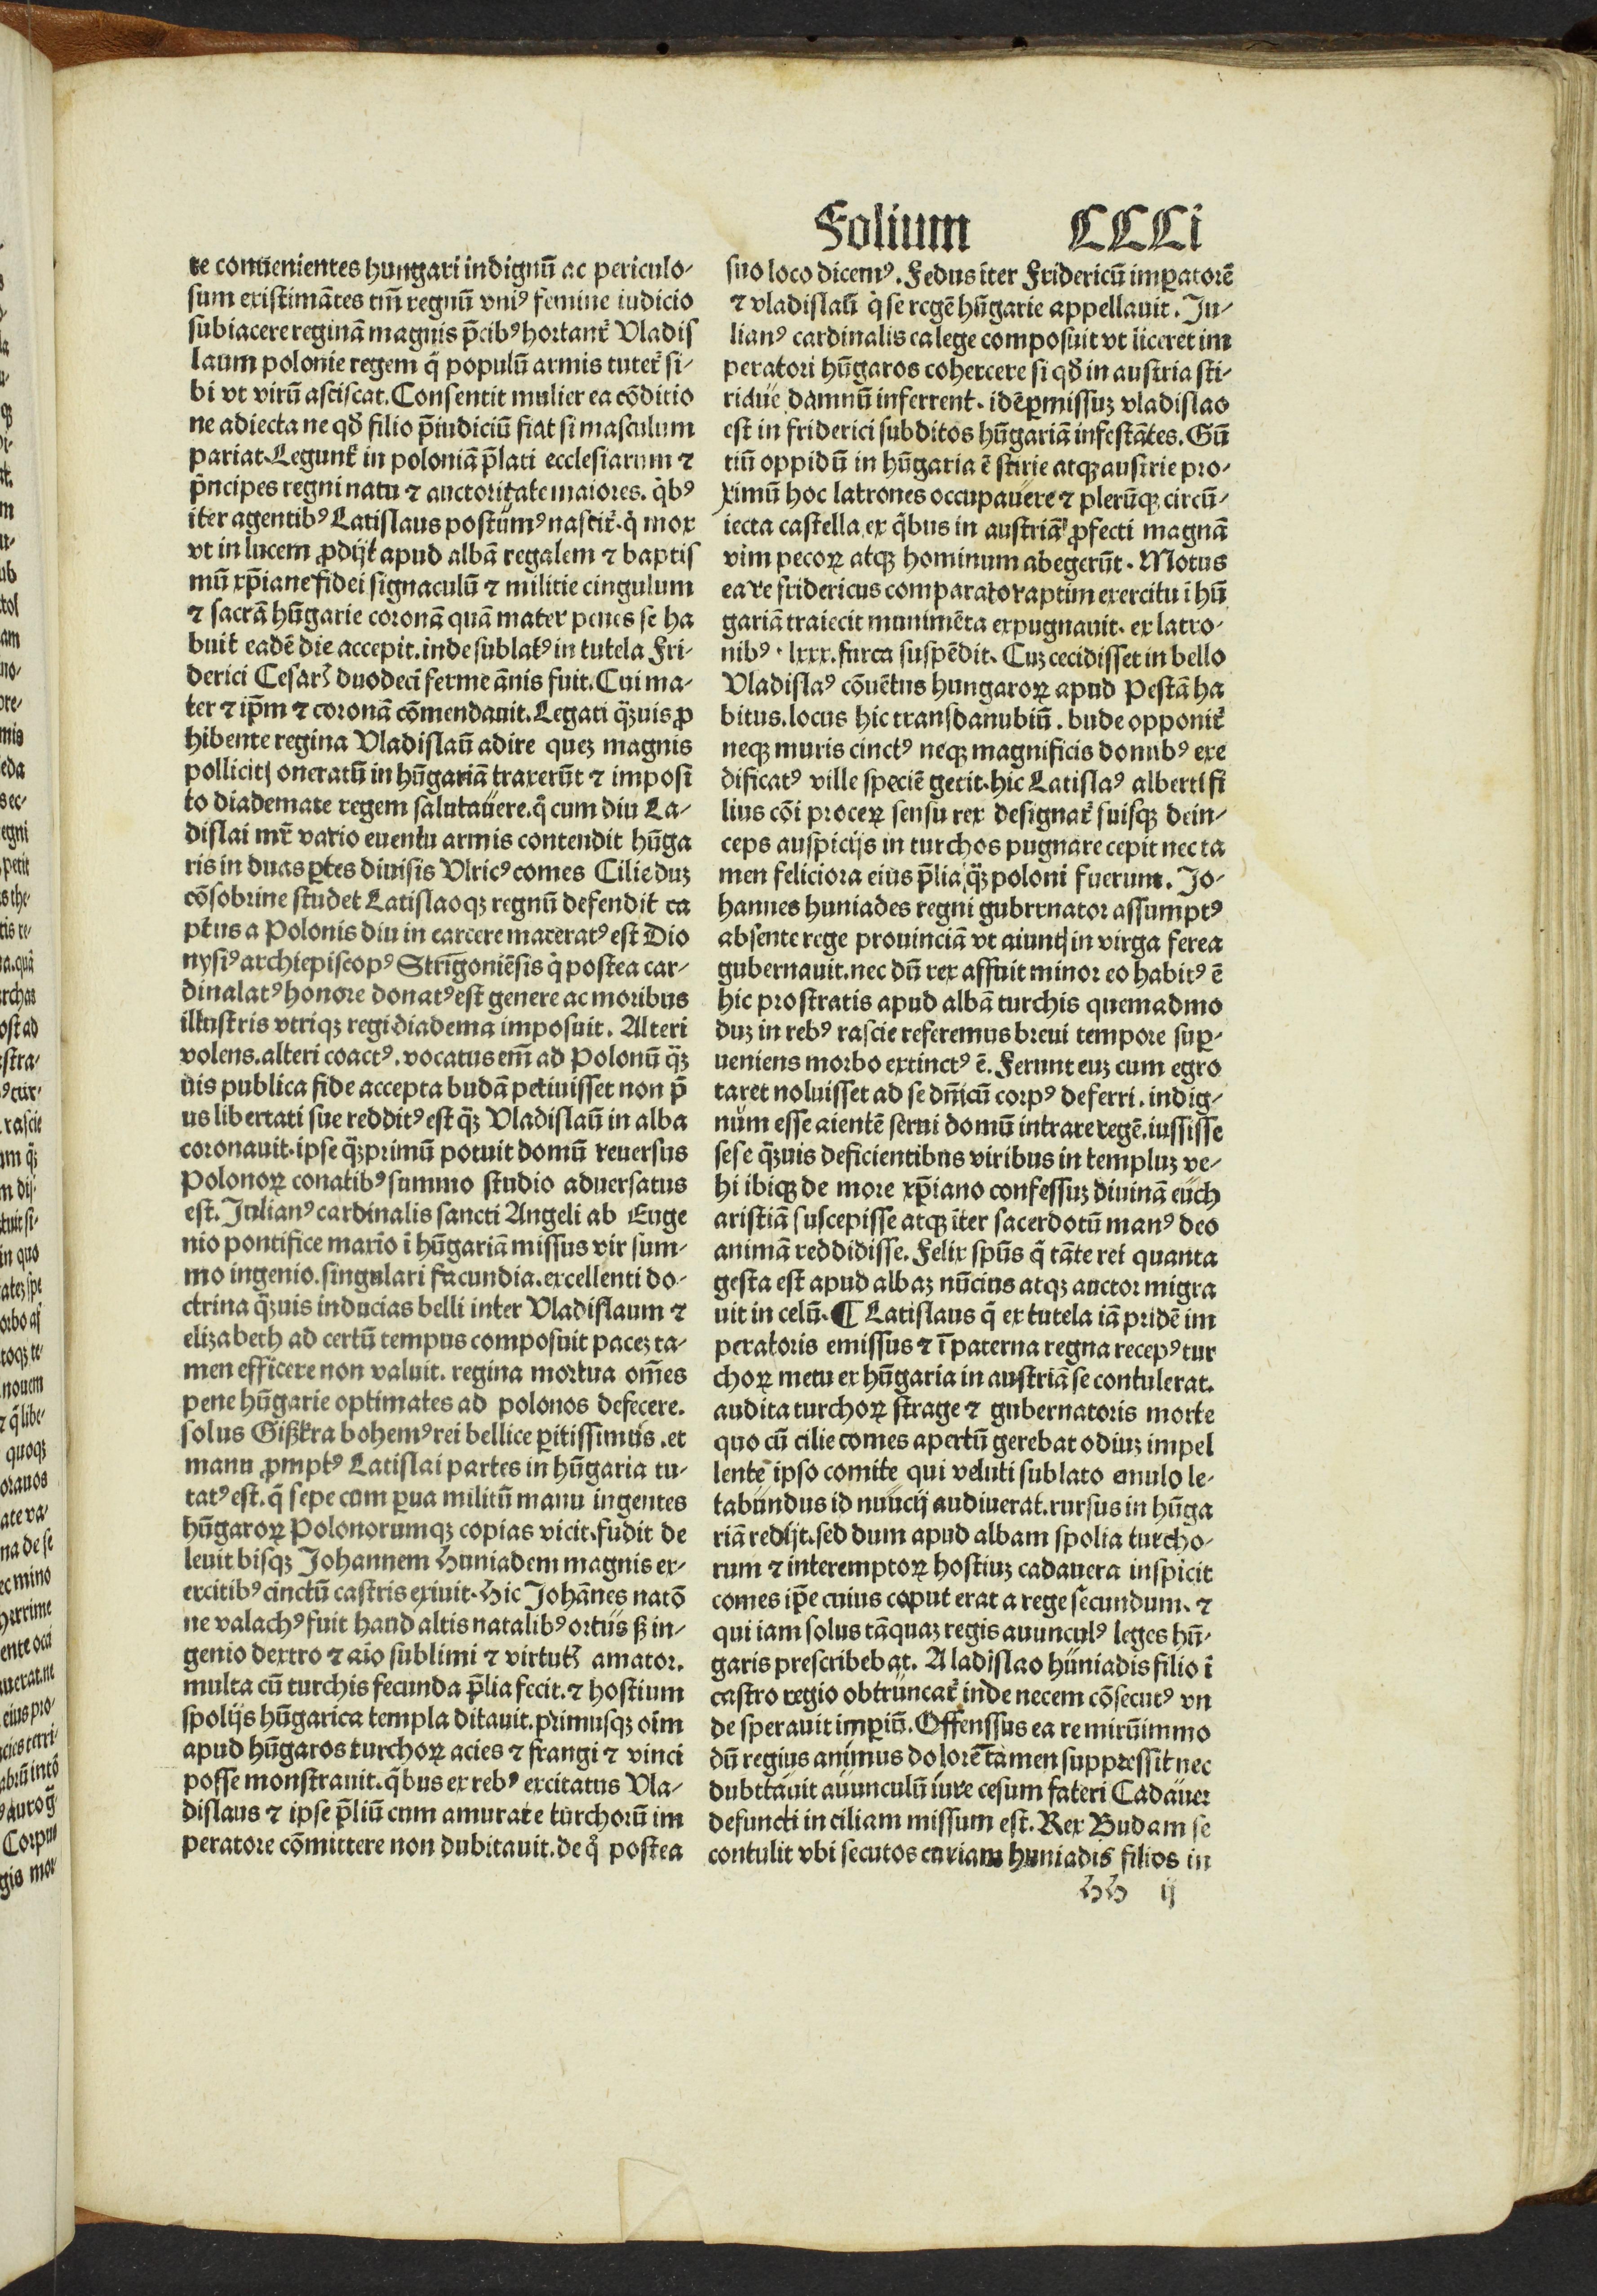 Folium CCCLi
te conuenientes hungari indignū ac periculo-
sum existimātes tm̄ regnū vniꝰ femine iudicio
subiacere reginā magnis p̄cibꝰ hortant᷑ Vladis
laum polonie regem q̇ populū armis tutet᷑ si-
bi vt virū asciscat. Consentit mulier ea cōditio
ne adiecta ne qđ filio p̄iudiciū fiat si masculum
pariat. Legunt᷑ in poloniā p̄lati ecclesiarum ⁊
p̄ncipes regni natu ⁊ auctoritate maiores. q̇bꝰ
iter agentibꝰ Latislaus postūmꝰ nascit᷑. q̇ mox
vt in lucem ꝓdijt apud albā regalem ⁊ baptis
mū xp̄iane fidei signaculū ⁊ militie cingulum
⁊ sacrā hūgarie coronā quā mater penes se ha
buit eadē die accepit. inde sublatꝰ in tutela Fri-
derici Cesarꝭ duodeci ferme ānis fuit. Cui ma-
ter ⁊ ip̄m ⁊ coronā cōmendauit. Legati q̄ꝫuis ꝓ
hibente regina Vladislaū adire queꝫ magnis
pollicitꝭ oneratū in hūgariā traxerūt ⁊ imposi
to diademate regem salutauere. q̇ cum diu La-
dislai mr̄e vario euentu armis contendit hūga
ris in duas ꝑtes diuisis Vlricꝰ comes Cilie duꝫ
cōsobrine studet Latislaoqꝫ regnū defendit ca
ptus a Polonis diu in carcere maceratꝰ est Dio
nysiꝰ archiepiscopꝰ Strīgoniēsis q̇ postea car-
dinalatꝰ honore donatꝰ est genere ac moribus
illustris vtriqꝫ regi diadema imposuit. Alteri
volens. alteri coactꝰ. vocatus em̄ ad Polonū q̄ꝫ
uis publica fide accepta budā petiuisset non p̄
us libertati sue redditꝰ est q̄ꝫ Vladislaū in alba
coronauit. ipse q̄ꝫprimū potuit domū reuersus
Polonoꝝ conatibꝰ summo studio aduersatus
est. Julianꝰ cardinalis sancti Angeli ab Euge
nio pontifice maxīo ī hūgariā missus vir sum-
mo ingenio. singulari facundia. excellenti do-
ctrina q̄ꝫuis inducias belli inter Vladislaum ⁊
elizabeth ad certū tempus composuit paceꝫ ta-
men efficere non valuit. regina mortua om̄es
pene hūgarie optimates ad polonos defecere.
solus Gißkra bohemꝰ rei bellice ꝑitissimus. et
manu ꝓmptꝰ Latislai partes in hūgaria tu-
tatꝰ est. q̄ sepe cum ꝑua militū manu ingentes
hūgaroꝝ Polonorumqꝫ copias vicit. fudit de
leuit bisqꝫ Johannem Huniadem magnis ex-
ercitibꝰ cinctū castris exiuit. Hic Johānes natō
ne valachꝰ fuit haud altis natalibꝰ ortus ß in-
genio dextro ⁊ aīo sublimi ⁊ virtutꝭ amator.
multa cū turchis fecunda p̄lia fecit. ⁊ hostium
spolijs hūgarica templa ditauit. primusqꝫ oīm
apud hūgaros turchoꝝ acies ⁊ frangi ⁊ vinci
posse monstrauit. q̇bus ex rebꝰ excitatus Vla-
dislaus ⁊ ipse p̄liū cum amurate turchorū im
peratore cōmittere non dubitauit. de q̊ postea
suo loco dicemꝰ. Fedus īter Fridericū imꝑatorē
⁊ vladislaū q̇ se regē hūgarie appellauit. Ju-
lianꝰ cardinalis ea lege composuit vt liceret im
peratori hūgaros cohercere si qđ in austria sti-
riaue damnū inferrent. idē ꝑmissuꝫ vladislao
est in friderici subditos hūgariā infestātes. Gū
tiū oppidū in hūgaria ē stirie atqꝫ austrie pro-
ximū hoc latrones occupauere ⁊ plerūqꝫ circū-
iecta castella, ex q̇bus in austriā ꝓfecti magnā
vim pecoꝝ atqꝫ hominum abegerūt. Motus
ea re fridericus comparato raptim exercitu ī hū
gariā traiecit munimēta expugnauit. ex latro-
nibꝰ. lxxx. furca suspēdit. Cuꝫ cecidisset in bello
Vladislaꝰ cōuētus hungaroꝝ apud Pestā ha
bitus. locus hic transdanubiū. bude opponit᷑
neqꝫ muris cinctꝰ neqꝫ magnificis domibꝰ exe
dificatꝰ ville speciē gerit. hic Latislaꝰ alberti fi
lius cōi proceꝝ sensu rex designat᷑ suisqꝫ dein-
ceps auspicijs in turchos pugnare cepit nec ta
men feliciora eius p̄lia q̄ꝫ poloni fuerunt. Jo-
hannes huniades regni gubernator assumptꝰ
absente rege prouinciā vt aiunt in virga ferea
gubernauit. nec dū rex affuit minor eo habitꝰ ē
hic prostratis apud albā turchis quemadmo
duꝫ in rebꝰ rascie referemus breui tempore suꝑ-
ueniens morbo extinctꝰ ē. Ferunt euꝫ cum egro
taret noluisset ad se dn̄icū corpꝰ deferri. indig-
num esse aientē serui domū intrare regē. iussisse
sese q̄ꝫuis deficientibus viribus in templuꝫ ve-
hi ibiqꝫ de more xp̄iano confessuꝫ diuinā euch
aristiā suscepisse atqꝫ īter sacerdotū manꝰ deo
animā reddidisse. Felix sp̄us q̄ tāte rei quanta
gesta est apud albaꝫ nūcius atqꝫ auctor migra
uit in celū. ¶ Latislaus q̄ ex tutela iā pridē im
peratoris emissus ⁊ ī paterna regna recepꝰ tur
choꝝ metu ex hūgaria in austriā se contulerat.
audita turchoꝝ strage ⁊ gubernatoris morte
quo cū cilie comes apertū gerebat odiuꝫ impel
lente ipso comite qui veluti sublato emulo le-
tabundus id nuncij audiuerat. rursus in hūga
riā redijt. sed dum apud albam spolia turcho-
rum ⁊ interemptoꝝ hostiuꝫ cadauera inspicit
comes ip̄e cuius caput erat a rege secundum. ⁊
qui iam solus tāquaꝫ regis auunculꝰ leges hū-
garis prescribebat. A ladislao huniadis filio ī
castro regio obtruncat᷑ inde necem cōsecutꝰ vn
de sperauit imꝑiū. Offenssus ea re mirūimmo
dū regius animus dolorē tamen suppressit nec
dubitauit auunculū iure cesum fateri Cadauer
defuncti in ciliam missum est. Rex Budam se
contulit vbi secutos curiam huniadis filios in
HH ij